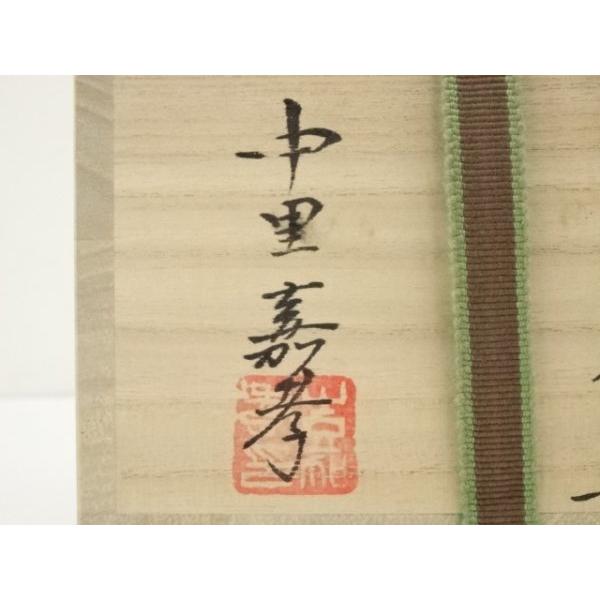 中里嘉孝